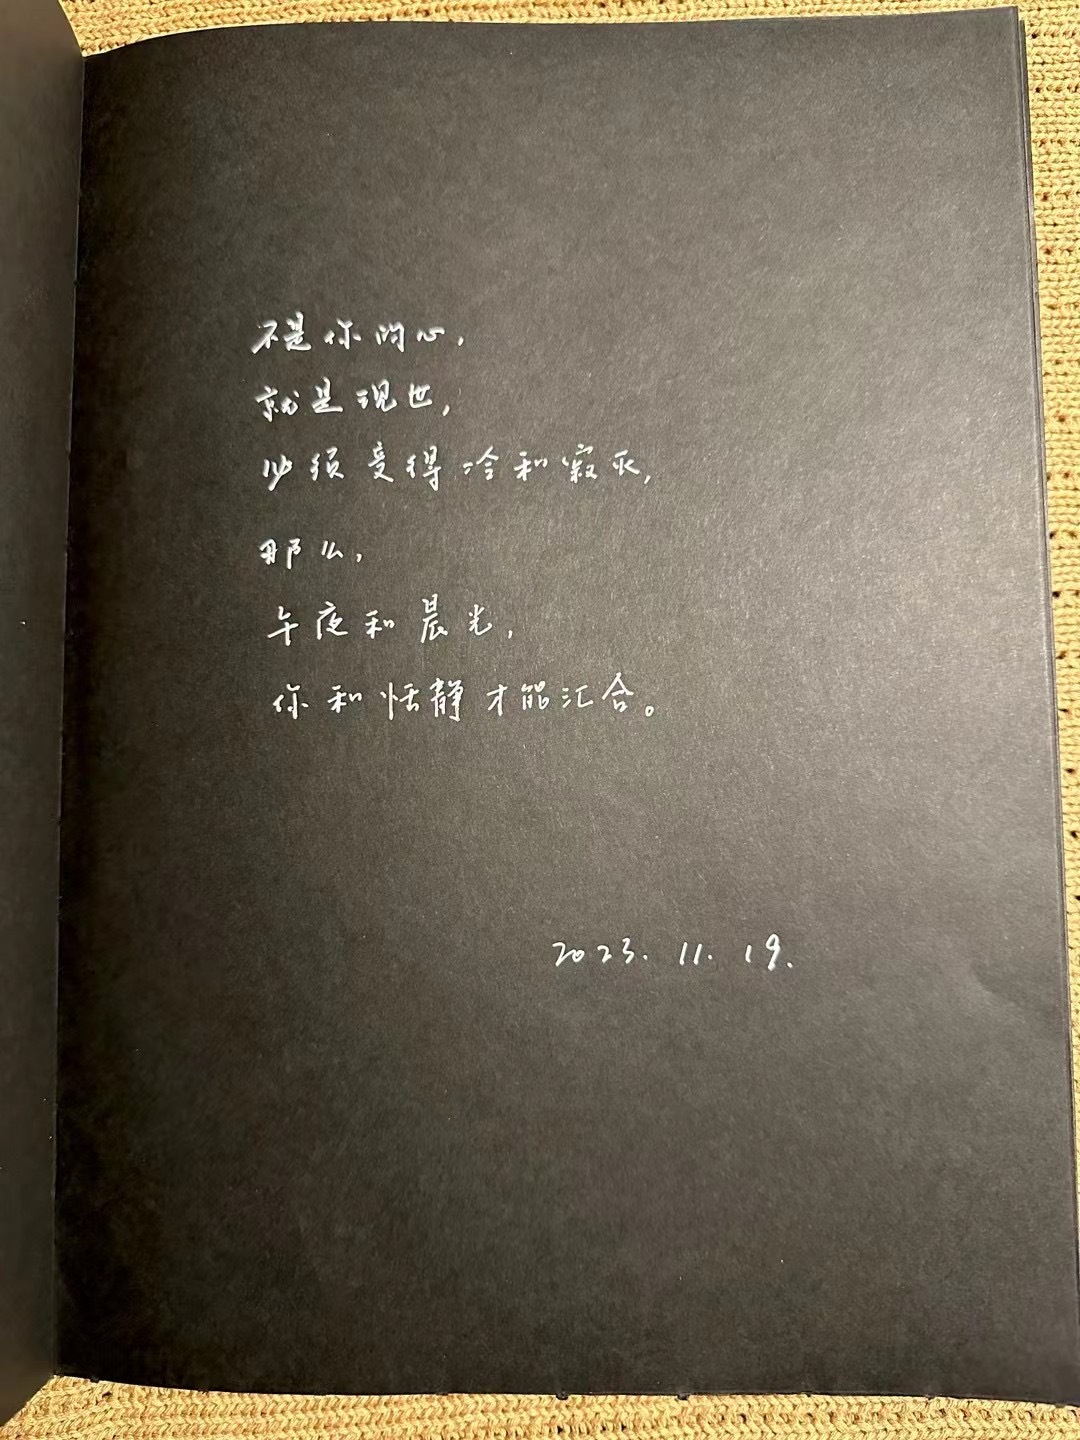 不是你的心，
就是现世，
必须变得冷和寂灭，
那么，
午夜和晨光，
你和恬静才能汇合。
2023. 11. 19.